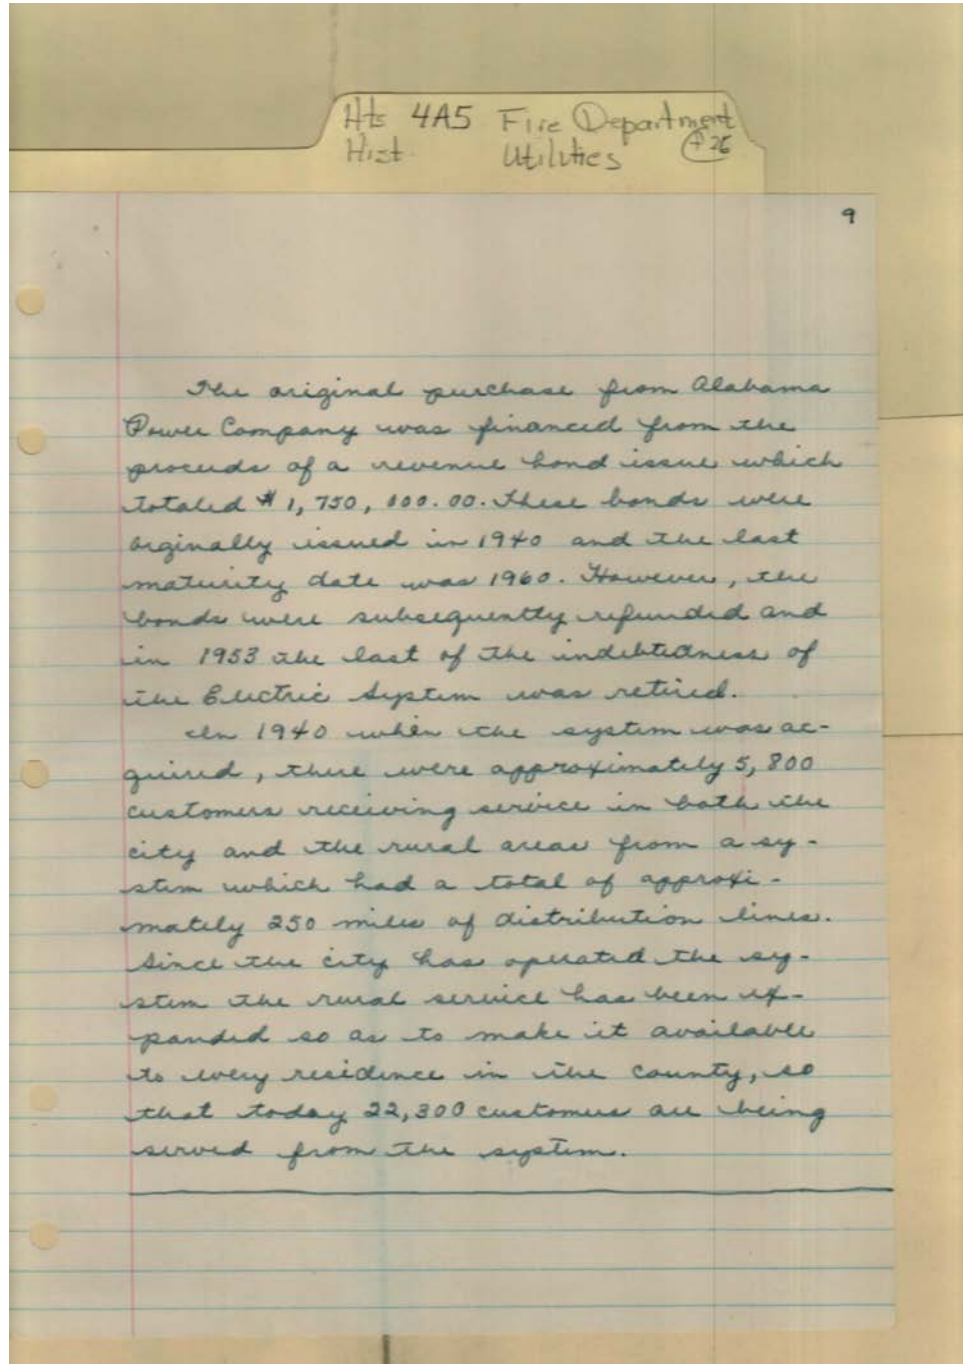 Hts 4A5 Fire Department
Hist. Utilities +26
9
The original purchase from Alabama
Power Company was financed from the
proceeds of a revenue bond issue which
totaled $1,750,000.00. These bonds were
orginally issued in 1940 and the last
maturity date was 1960. However, the
bonds were subsequently refunded and
in 1953 the last of the indebtedness of
the Electric System was retired.
In 1940 when the system was ac-
quired, there were approximately 5,800
customers receiving service in both the
city and the rural areas from a sy-
stem which had a total of approxi-
mately 250 miles of distribution lines.
Since the city has operated the sy-
stem the rural service has been ex-
panded so as to make it available
to every residence in the county, so
that today 22,300 customers are being
served from the system.